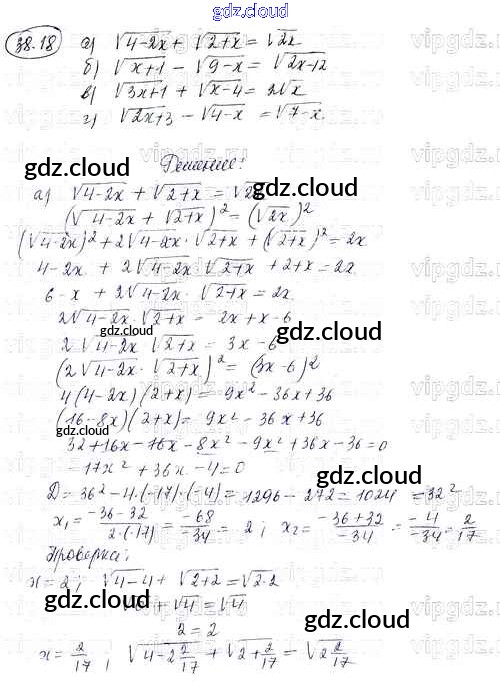 gdz.cloud
38.18 а) √4-2x + √2+x = √2x
б) √x+1 - √9-x = √2x-12
в) √3x+1 + √x-4 = 2√x
г) √2x+3 - √4-x = √7-x
Решение:
gdz.cloud gdz.cloud
а) √4-2x + √2+x = √2x
(√4-2x + √2+x)² = (√2x)²
(√4-2x)² + 2√4-2x · √2+x + (√2+x)² = 2x
4-2x + 2√4-2x · √2+x + 2+x = 2x
6-x + 2√4-2x · √2+x = 2x
2√4-2x · √2+x = 2x+x-6
gdz.cloud gdz.cloud
2√4-2x · √2+x = 3x-6
(2√4-2x · √2+x)² = (3x-6)²
4(4-2x)(2+x) = 9x² - 36x + 36
(16-8x)(2+x) = 9x² - 36x + 36
gdz.cloud
32+16x-16x-8x²-9x²+36x-36=0
-17x² + 36x - 4 = 0
gdz.cloud
D = 36² - 4·(-17)·(-4) = 1296 - 272 = 1024 = 32²
x₁ = -36-32 / 2·(-17) = -68 / -34 = 2; x₂ = -36+32 / -34 = -4 / -34 = 2/17
gdz.cloud
Проверка:
x=2; √4-4 + √2+2 = √2·2
gdz.cloud gdz.cloud
√0 + √4 = √4
2 = 2
gdz.cloud
x = 2/17, √4-2 2/17 + √2+2/17 = √2 2/17
vipgdz.com